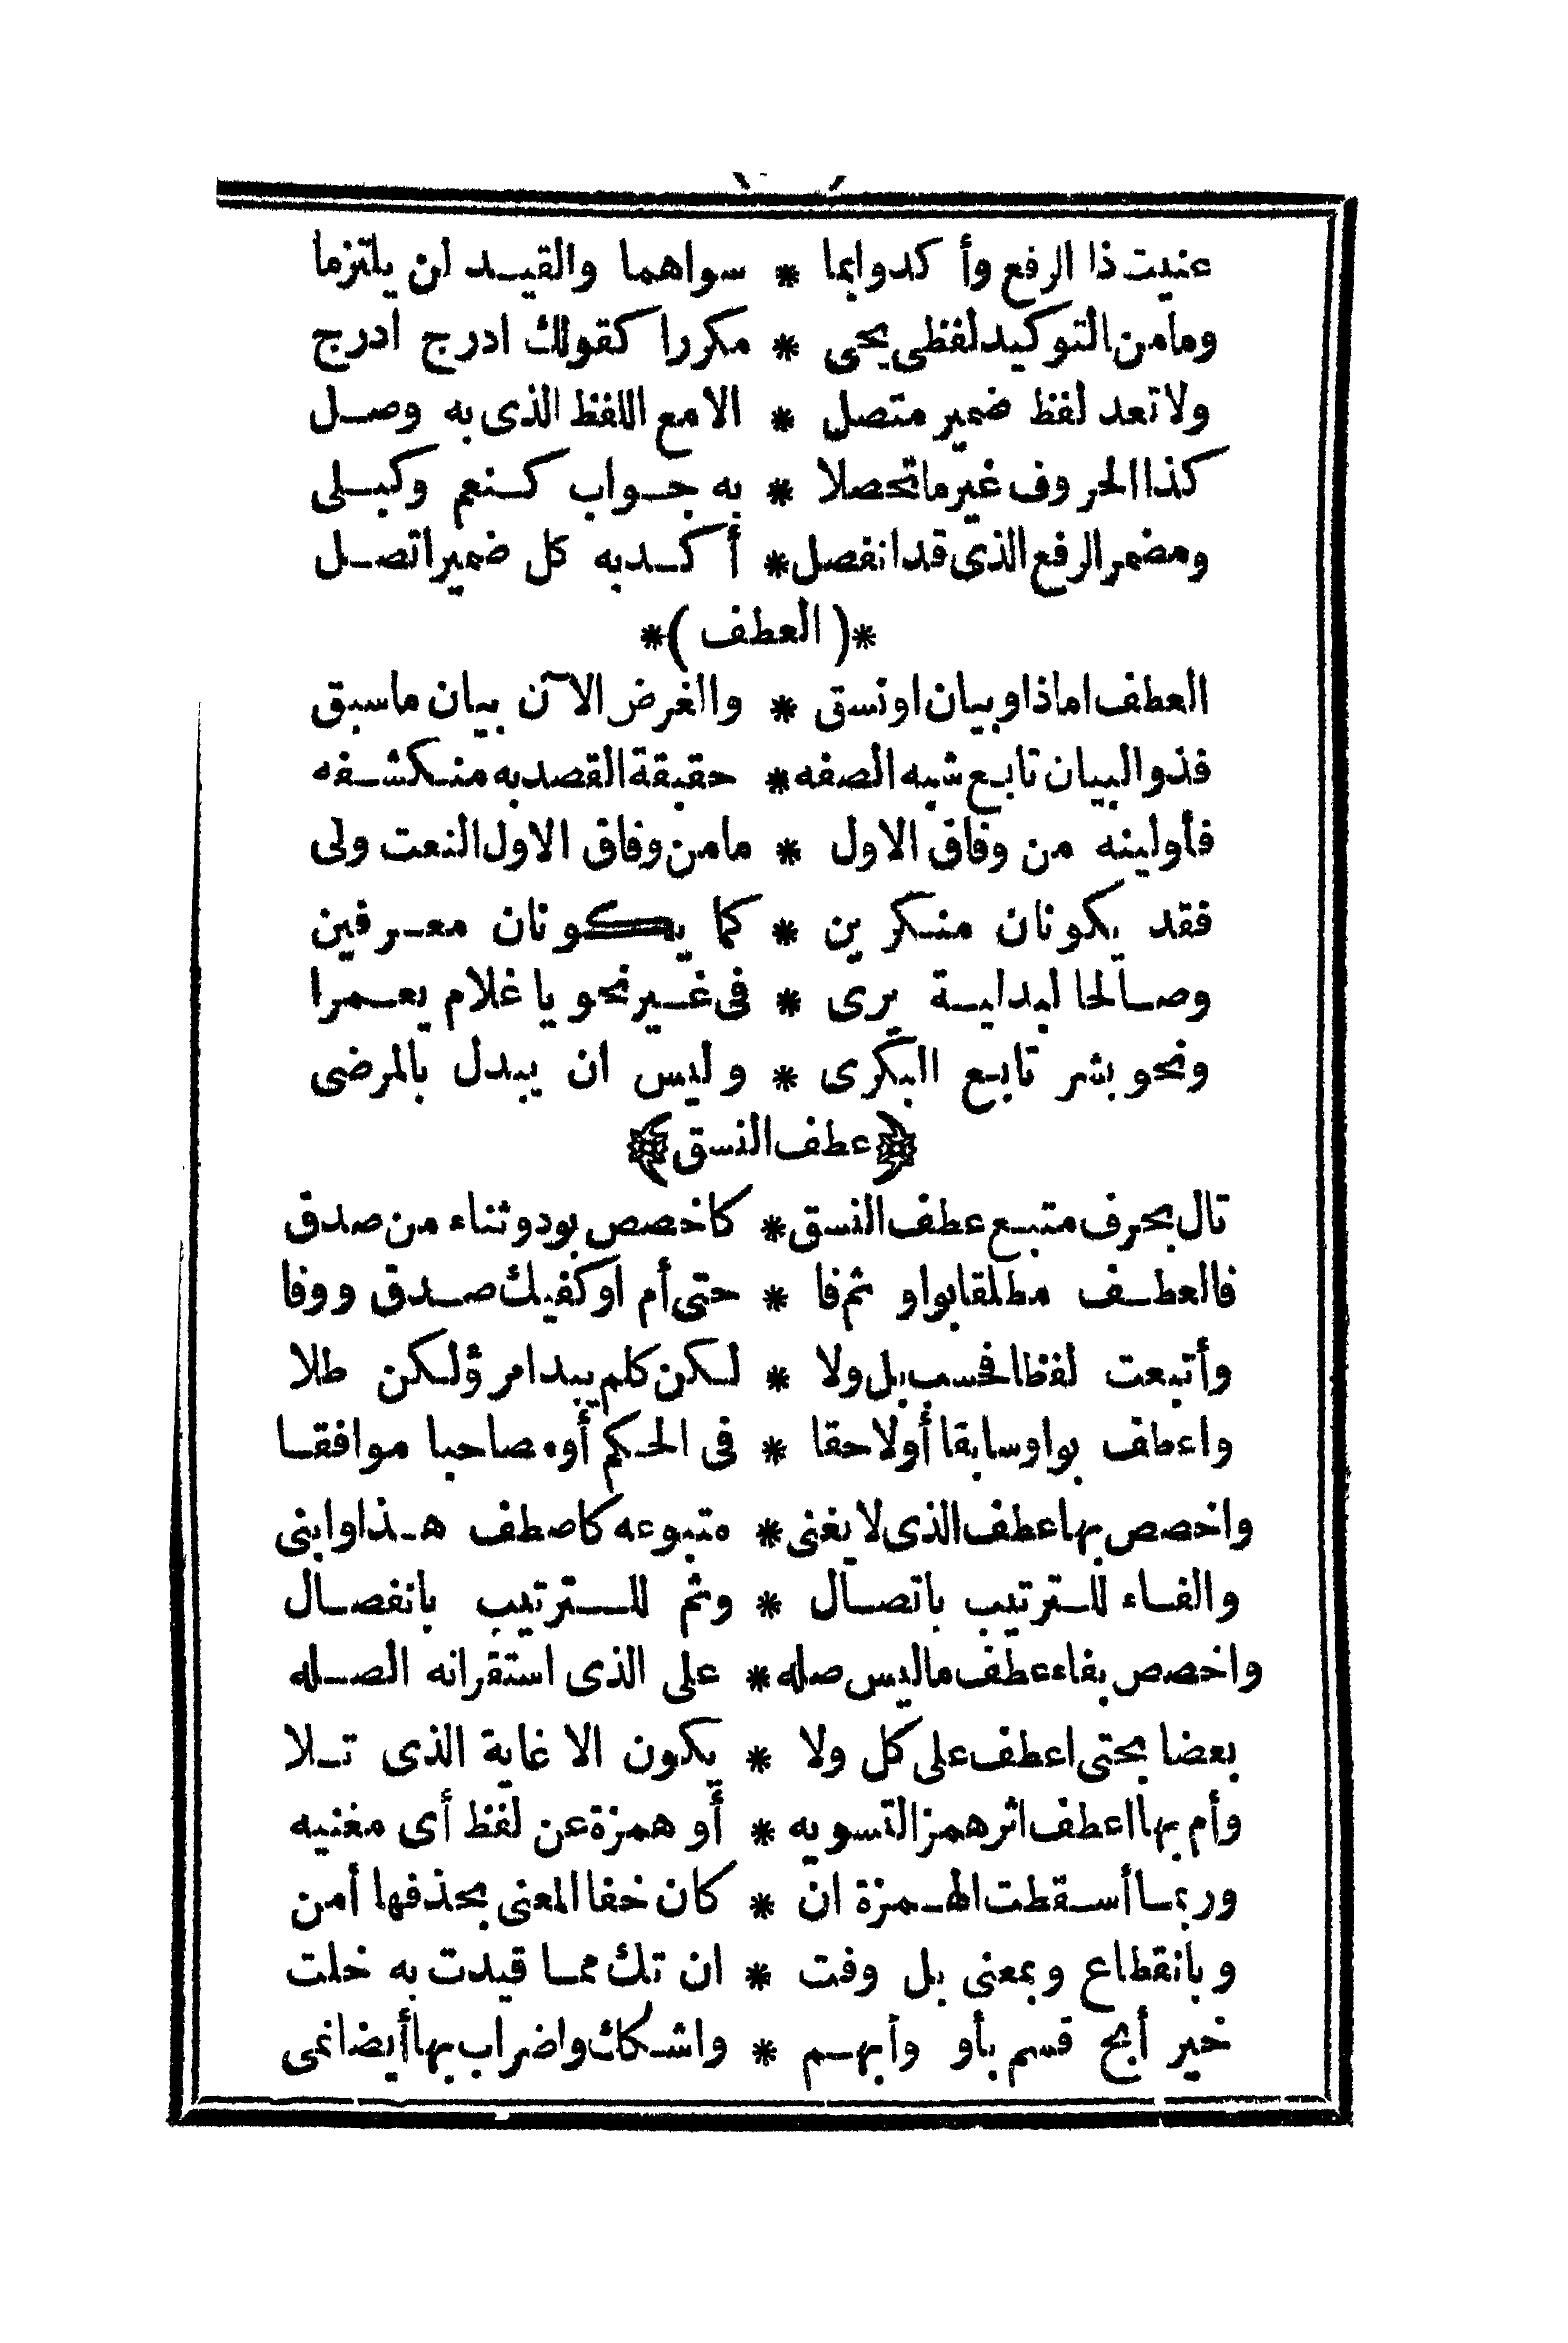 عنيت ذا الرفع وأ كدوا بما * سواهما والقيـد لن يلتزما
وما من التوكيد لفظى يجى * مكررا كقولك ادرج ادرج
ولا تعد لفظ ضمير متصل * الا مع اللفظ الذى به وصـل
كذا الحروف غير ما تحصلا * به جـواب كـنعم وكبـلى
ومضمر الرفع الذى قد انفصل * أ كـد به كل ضمير اتصـل
*( العطف )*
العطف اما ذا وبيان او نسق * والغرض الآن بيان ما سبق
فذو البيان تابع شبه الصفه * حقيقة القصد به منـكشـفه
فأولينه من وفاق الاول * ما من وفاق الاول النعت ولى
فقد يكونان منـكرين * كما يـكونان معـرفين
وصـالحا لبدليـة يرى * فى غـير نحو يا غلام يعـمرا
ونحو بشر تابع البكرى * وليس ان يبدل بالمرضى
﴿عطف النسق﴾
تال بحرف متبع عطف النسق * كاخصص بود وثناء من صدق
فالعطـف مطلقا بواو ثم فا * حتى أم او كفيك صـدق ووفا
وأتبعت لفظا فحسب بل ولا * لـكن كلم يبد امرؤ لـكن طلا
واعطف بواو سابقا أو لاحقا * فى الحـكم أو مصاحبا موافقـا
واخصص بها عطف الذى لا يغنى * متبوعه كاصطف هـذا وابنى
والفـاء للـترتيب باتصـال * وثم للـترتيب بانفصـال
واخصص بفاء عطف ما ليس صله * على الذى استقر انه الصـله
بعضا بحتى اعطف على كل ولا * يكون الا غاية الذى تـلا
وأم بها اعطف اثر همز التسويه * أو همزة عن لفظ أى مغنيه
وربمـا أسـقطت الهـمزة ان * كان خفا المعنى بحذفها أمن
وبانقطاع وبمعنى بل وفت * ان تك ممـا قيدت به خلت
خير أبح قسم بأو وأبهـم * واشـكك واضراب بها أيضا نمى